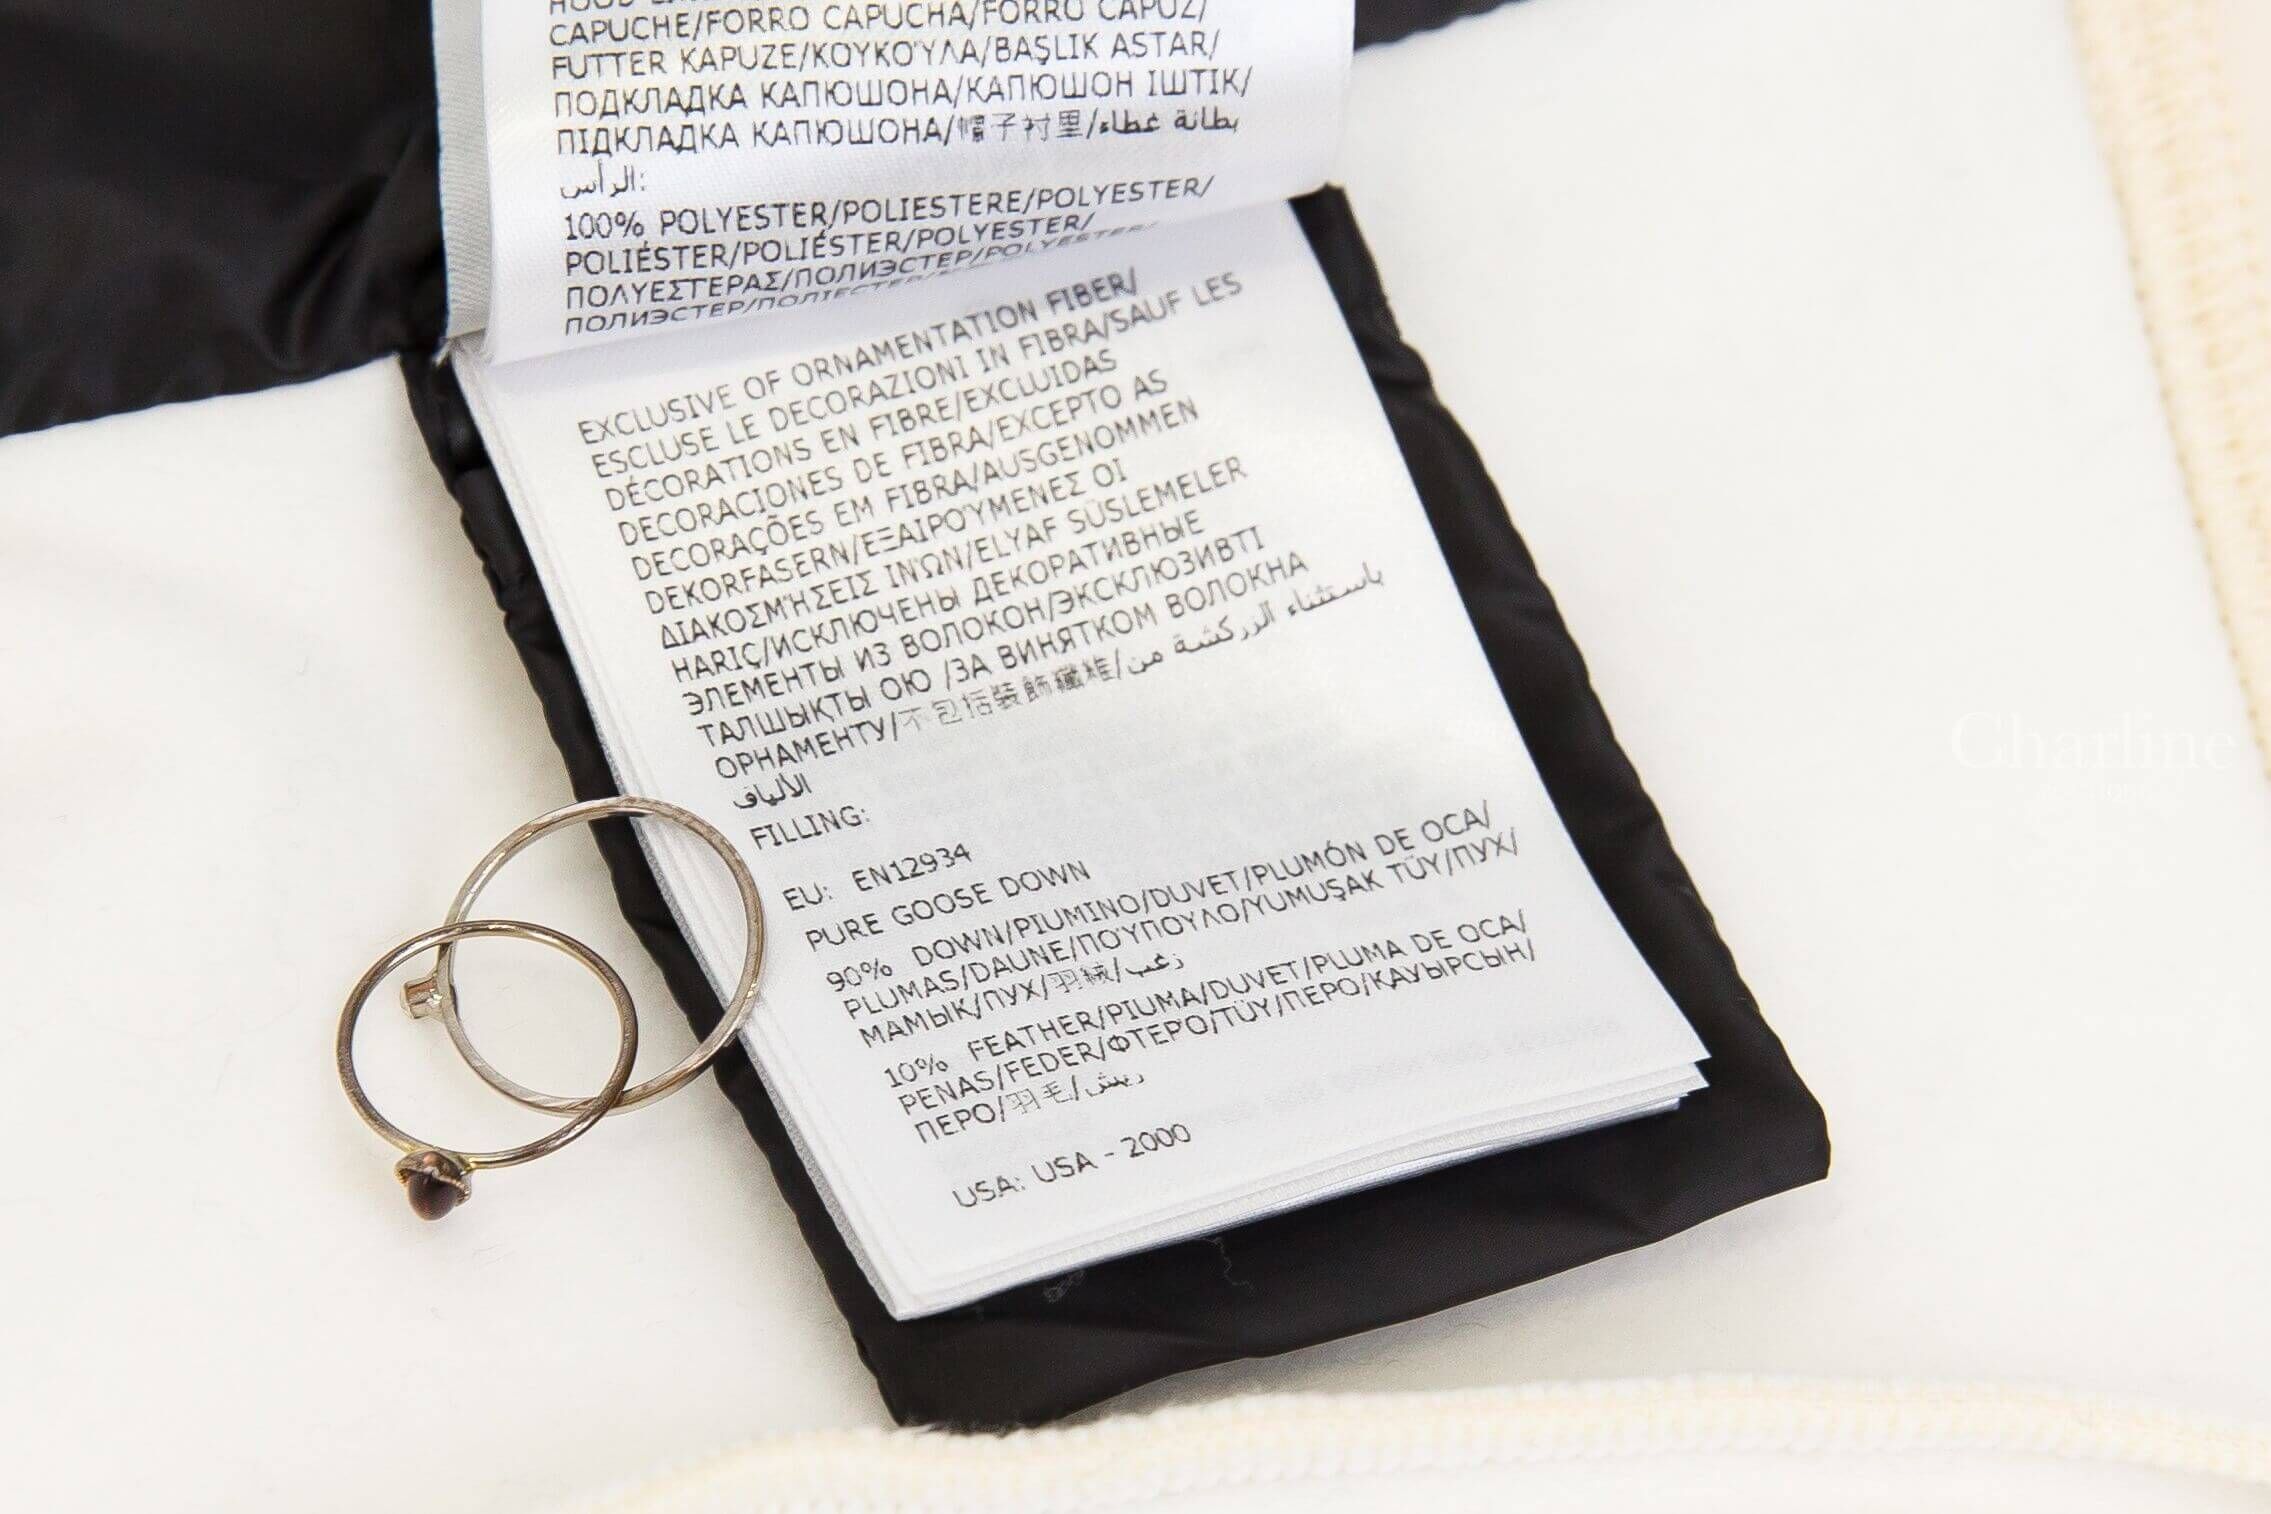 CAPUCHE/FORRO CAPUCHA/FORRO CAPUZ/
FUTTER KAPUZE/ΚΟΥΚΟΎΛΑ/BAŞLIK ASTAR/
ПОДКЛАДКА КАПЮШОНА/КАПЮШОН ІШТІК/
ПІДКЛАДКА КАПЮШОНА/帽子衬里/بطانة غطاء
الرأس:
100% POLYESTER/POLIESTERE/POLYESTER/
POLIÉSTER/POLIÉSTER/POLYESTER/
ΠΟΛΥΕΣΤΕΡΑΣ/ПОЛИЭСТЕР/POLYESTER/
ПОЛИЭСТЕР/ПОЛІЕСТЕР/POLYESTER/
EXCLUSIVE OF ORNAMENTATION FIBER/
ESCLUSE LE DECORAZIONI IN FIBRA/SAUF LES
DÉCORATIONS EN FIBRE/EXCLUIDAS
DECORACIONES DE FIBRA/EXCEPTO AS
DECORAÇÕES EM FIBRA/AUSGENOMMEN
DEKORFASERN/ΕΞΑΙΡΟΎΜΕΝΕΣ ΟΙ
ΔΙΑΚΟΣΜΉΣΕΙΣ ΙΝΏΝ/ELYAF SÜSLEMELER
HARIÇ/ИСКЛЮЧЕНЫ ДЕКОРАТИВНЫЕ
ЭЛЕМЕНТЫ ИЗ ВОЛОКОН/ЭКСКЛЮЗИВТІ
ТАЛШЫҚТЫ ОЮ /ЗА ВИНЯТКОМ ВОЛОКНА
ОРНАМЕНТУ/不包括装飾纖維/باستثناء الزركشة من
الألياف
FILLING:
EU: EN12934
PURE GOOSE DOWN
90% DOWN/PIUMINO/DUVET/PLUMÓN DE OCA/
PLUMAS/DAUNE/ΠΟΎΠΟΥΛΟ/YUMUŞAK TÜY/ПУХ/
МАМЫК/ПУХ/羽絨/زغب
10% FEATHER/PIUMA/DUVET/PLUMA DE OCA/
PENAS/FEDER/ΦΤΕΡΌ/TÜY/ПЕРО/ҚАУЫРСЫН/
ПЕРО/羽毛/ريش
USA: USA - 2000
Charline